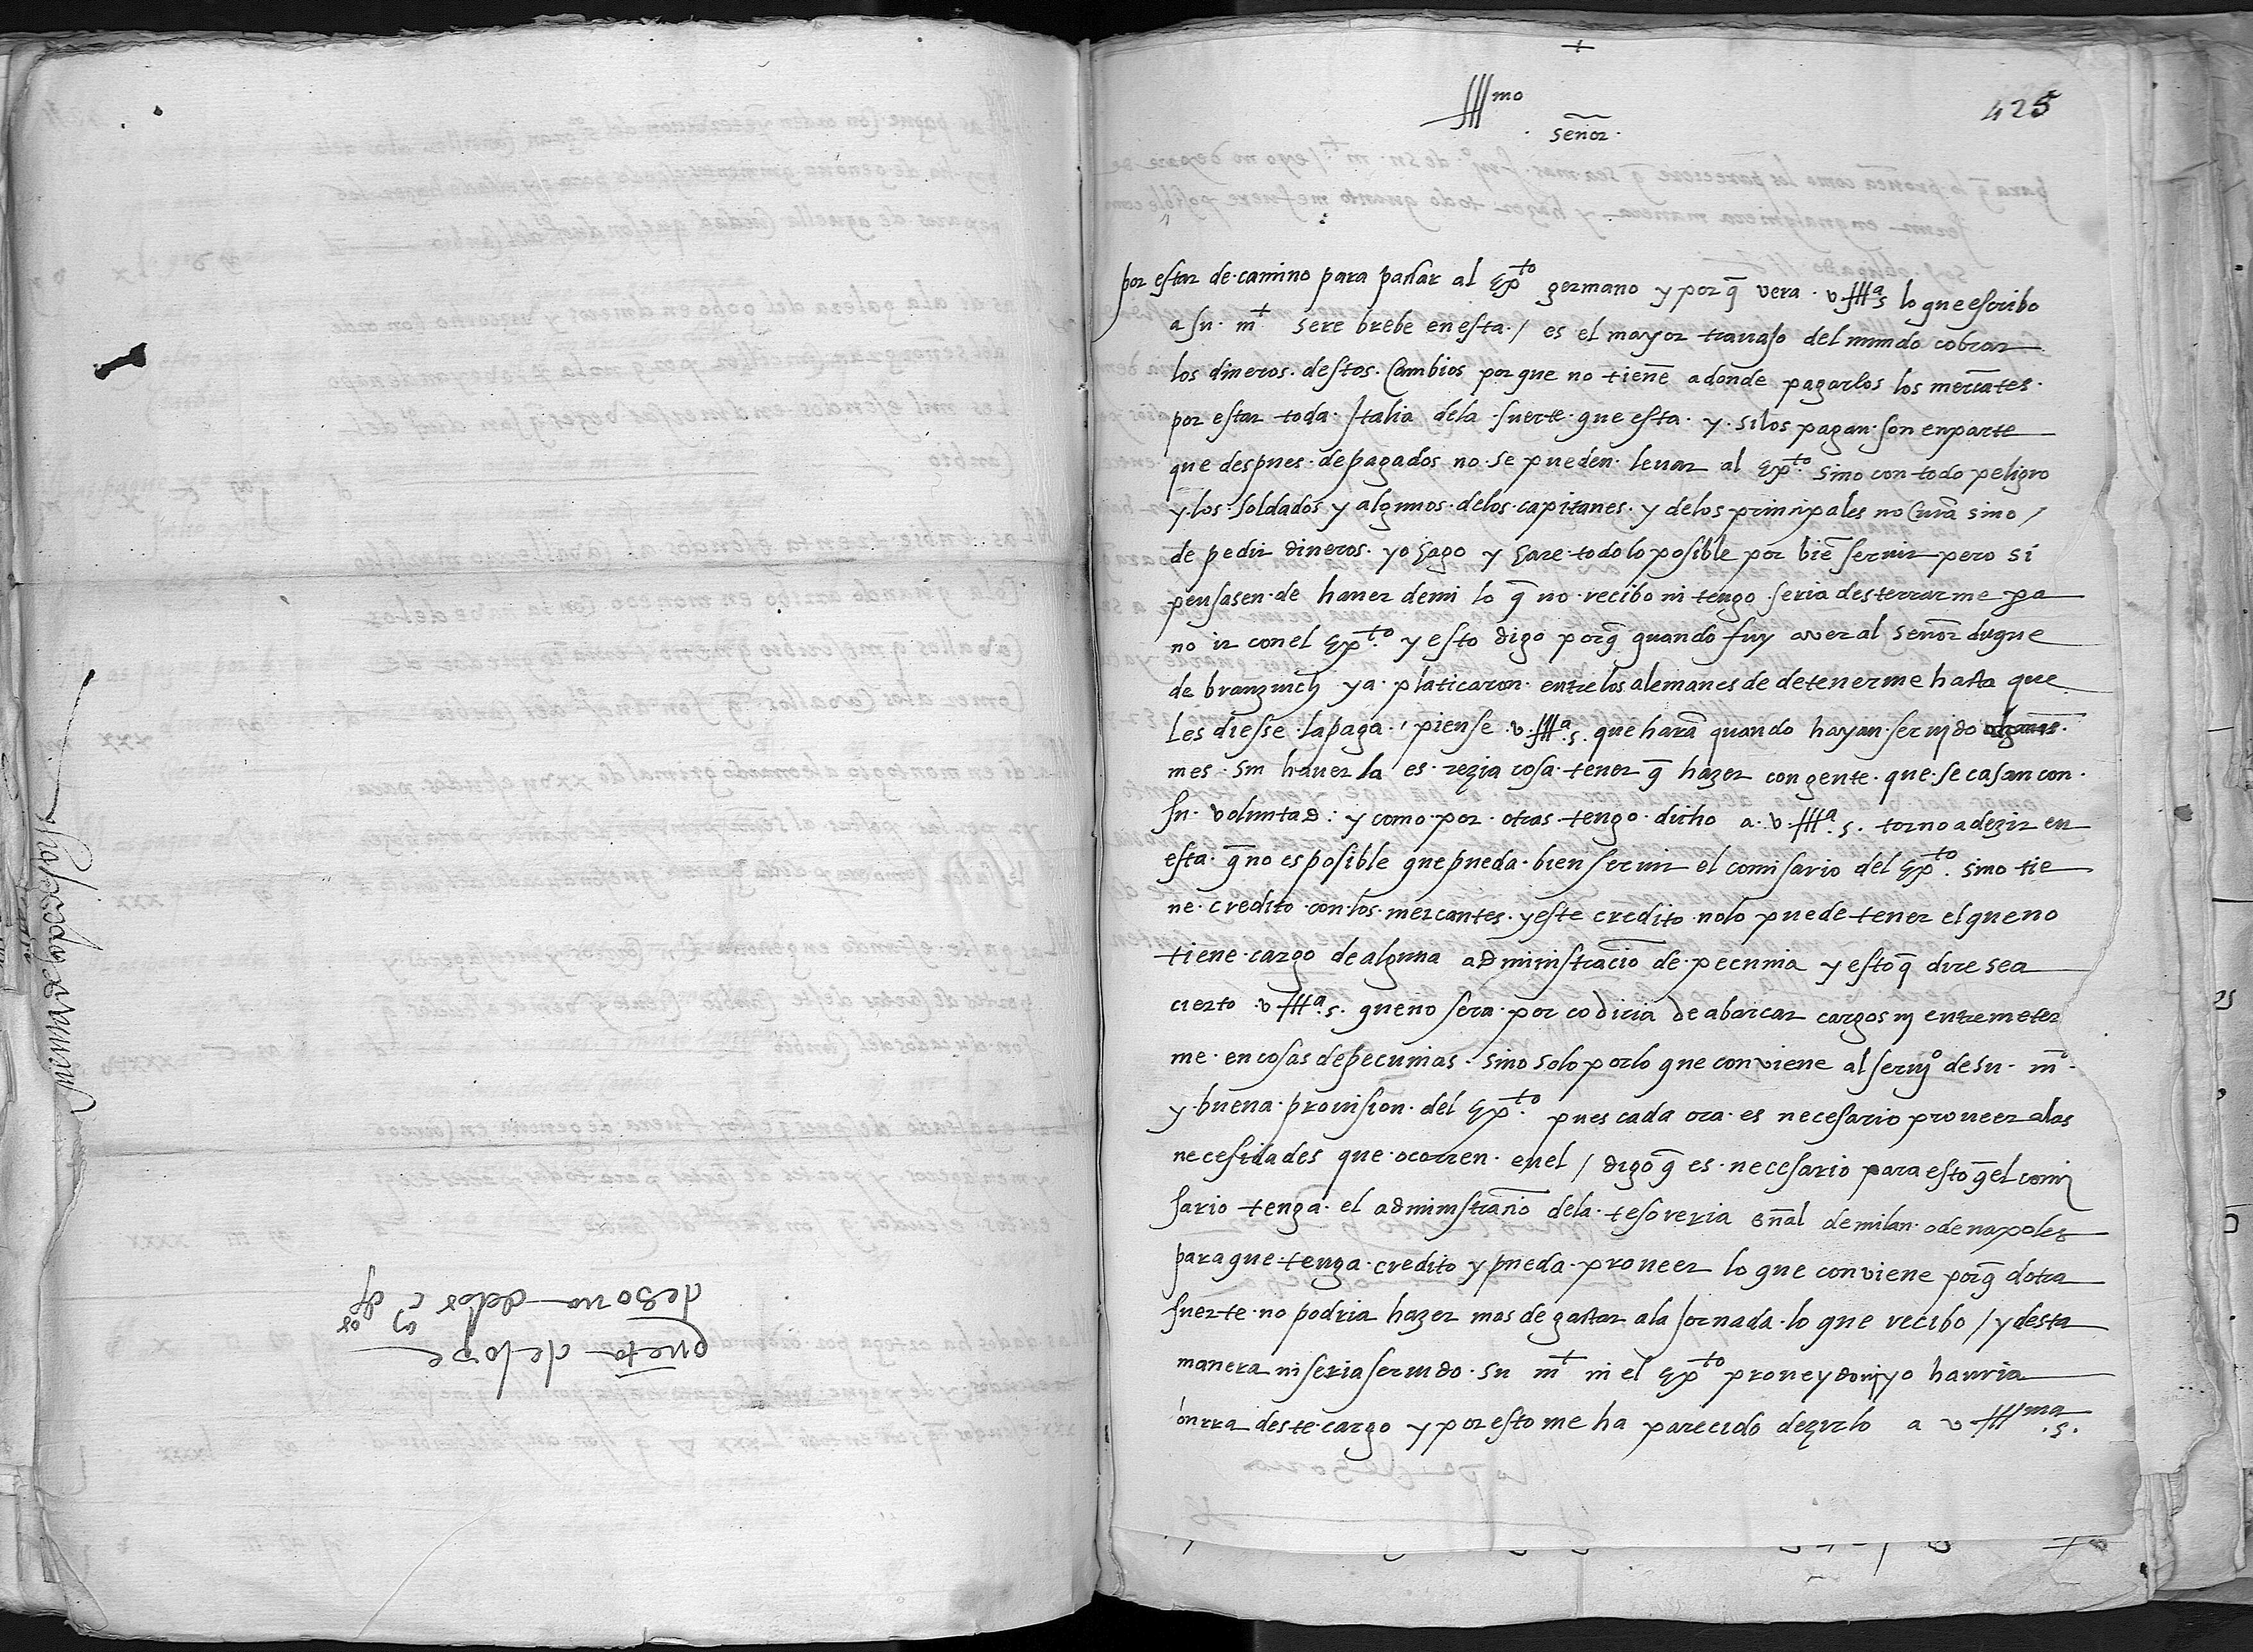 cuēta de lope
de soria de los c U dos
+
Illmo
señor
425
por estar de camino para pasar al expto germano y porq̄ vera v Illa s lo que escribo
a su mt sere brebe en esta / es el mayor trauajo del mundo cobrar
los dineros destos cambios por que no tienē adonde pagarlos los mercātes
por estar toda Italia dela suerte que esta y si los pagan son en parte
que despues de pagados no se pueden leuar al expto sino con todo peligro
y los soldados y algunos delos capitanes y delos principales no curā sino /
de pedir dineros yo hago y hare todo lo posible por biē seruir pero si
pensasen de hauer de mi lo q̄ no recibo ni tengo seria desterrarme pa
no ir con el expto y esto digo porq̄ quando fuy a ver al señor duque
de branzuich ya platicaron entre los alemanes de detenerme hasta que
les diesse la paga / piense v Illa s que harā quando hayan seruido
mes sin hauerla es rezia cosa tener q̄ hazer con gente que se casan con
su voluntad: y como por otras tengo dicho a v Illa s torno a dezir en
esta q̄ no es posible que pueda bien seruir el comisario del expto sino tie
ne credito con los mercantes y este credito no lo puede tener el que no
tiene cargo de alguna administraciō de pecunia y esto q̄ dire sea
cierto v Illa s que no sera por codicia de abarcar cargos nj entremeter
me en cosas de pecunias sino solo por lo que conviene al serujo de su mt
y buena prouision del expto pues cada ora es necesario proueer alas
necesidades que ocorren en el / digo q̄ es necesario para esto q̄ el comi
sario tenga el administraciō dela tesoreria gñal de milan o de napoles
para que tenga credito y pueda proueer lo que conviene porq̄ dotra
suerte no podria hazer mas de gastar ala jornada lo que recibo / y desta
manera ni seria seruido su mt ni el expto proueydo nj yo hauria
onrra deste cargo y por esto me ha parecido dezirlo a v Illma s